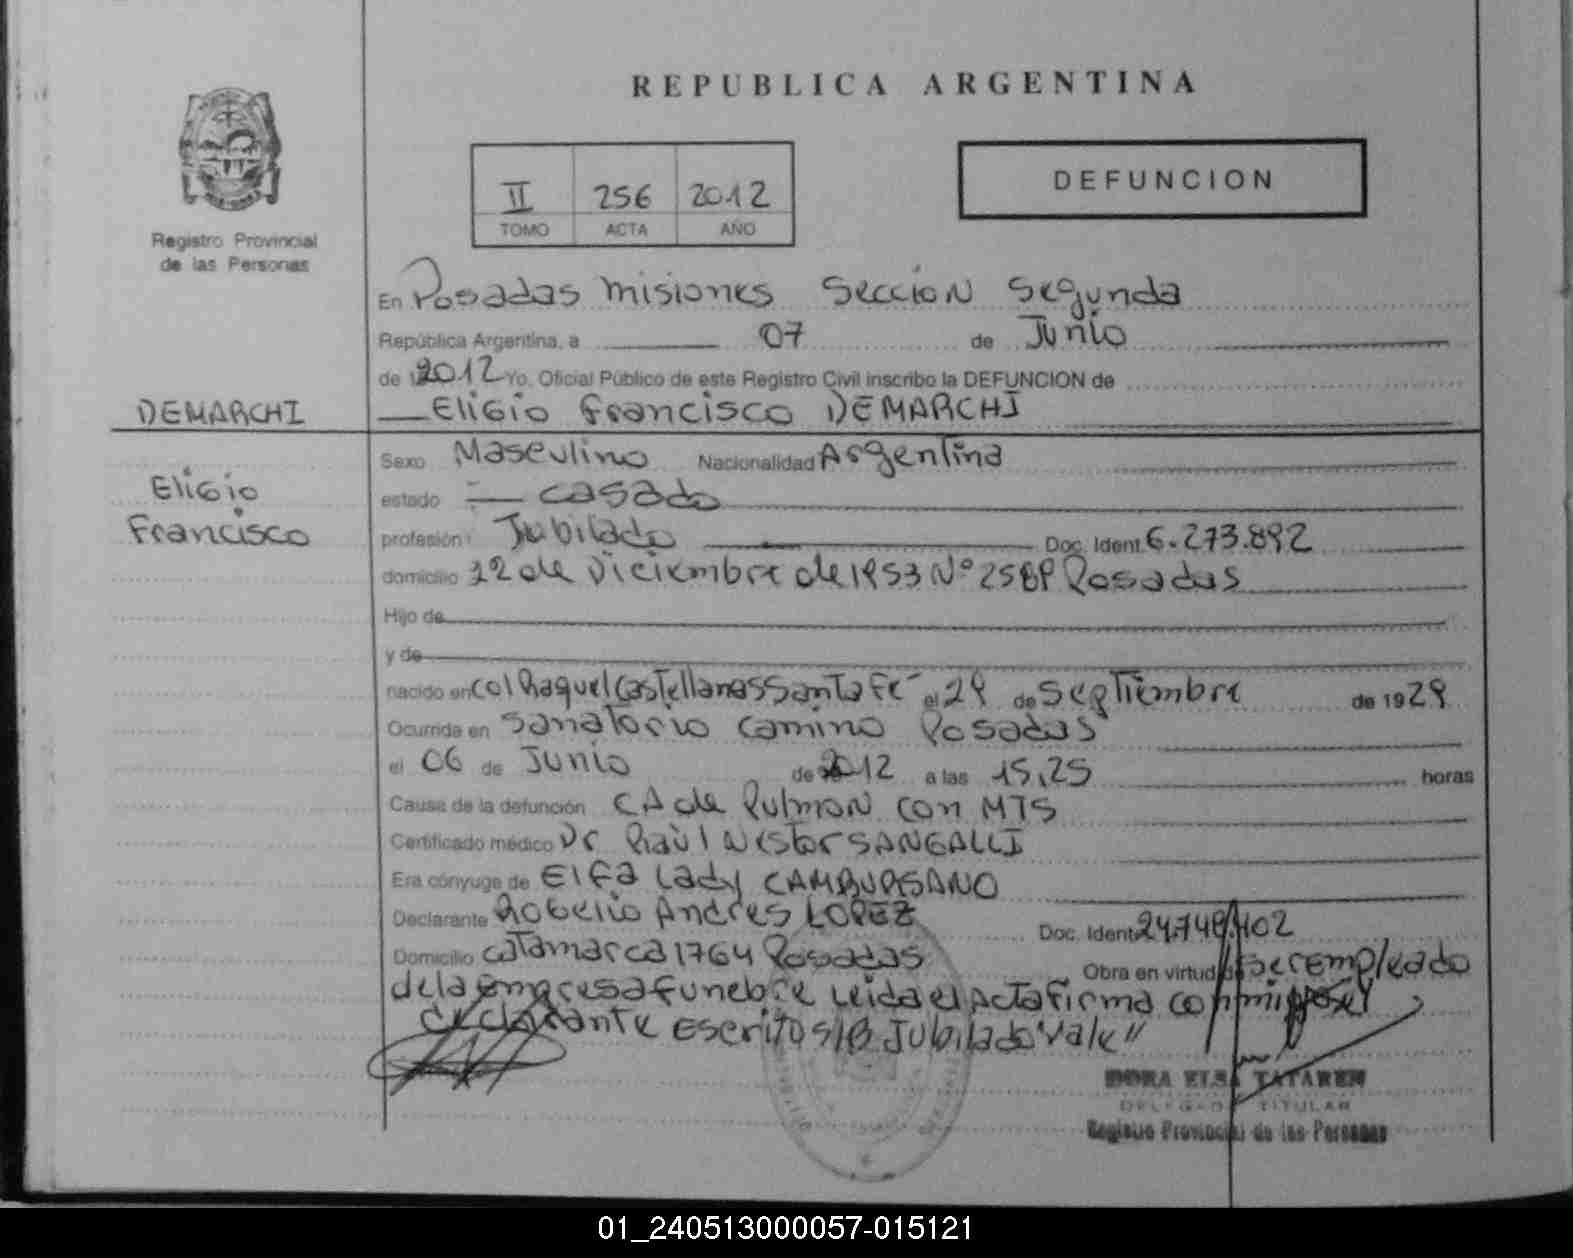 REPUBLICA ARGENTINA
II 256 2012
TOMO ACTA AÑO
DEFUNCION
Registro Provincial
de las Personas
En Posadas Misiones Sección Segunda
República Argentina, a 07 de Junio
de 2012 Yo, Oficial Público de este Registro Civil inscribo la DEFUNCION de
DEMARCHI
Eligio Francisco DEMARCHI
Eligio
Francisco
Sexo Masculino Nacionalidad Argentina
estado casado
profesión Jubilado Doc. Ident. 6.273.892
domicilio 12 de Diciembre de 1953 Nº Posadas
Hijo de
y de
nacido en Col Raquel Castellanos Santa Fe el 29 de Septiembre de 1929
Ocurrida en Sanatorio Camino Posadas
el 06 de Junio de 2012 a las 15,25 horas
Causa de la defunción CA de Pulmon con MTS
Certificado médico Dr Raùl Nestor SANGALLI
Era cónyuge de Elfa Lady CAMBURSANO
Declarante Rogelio Andres LOPEZ Doc. Ident. 24.740.402
Domicilio Catamarca 1764 Posadas Obra en virtud de ser empleado
de la empresa funebre Leida el Acta firma conmigo el
declarante Escrito s/B Jubilado "Vale"
DORA ELSA TATAREN
DELEGADA TITULAR
Registro Provincial de las Personas
01_240513000057-015121